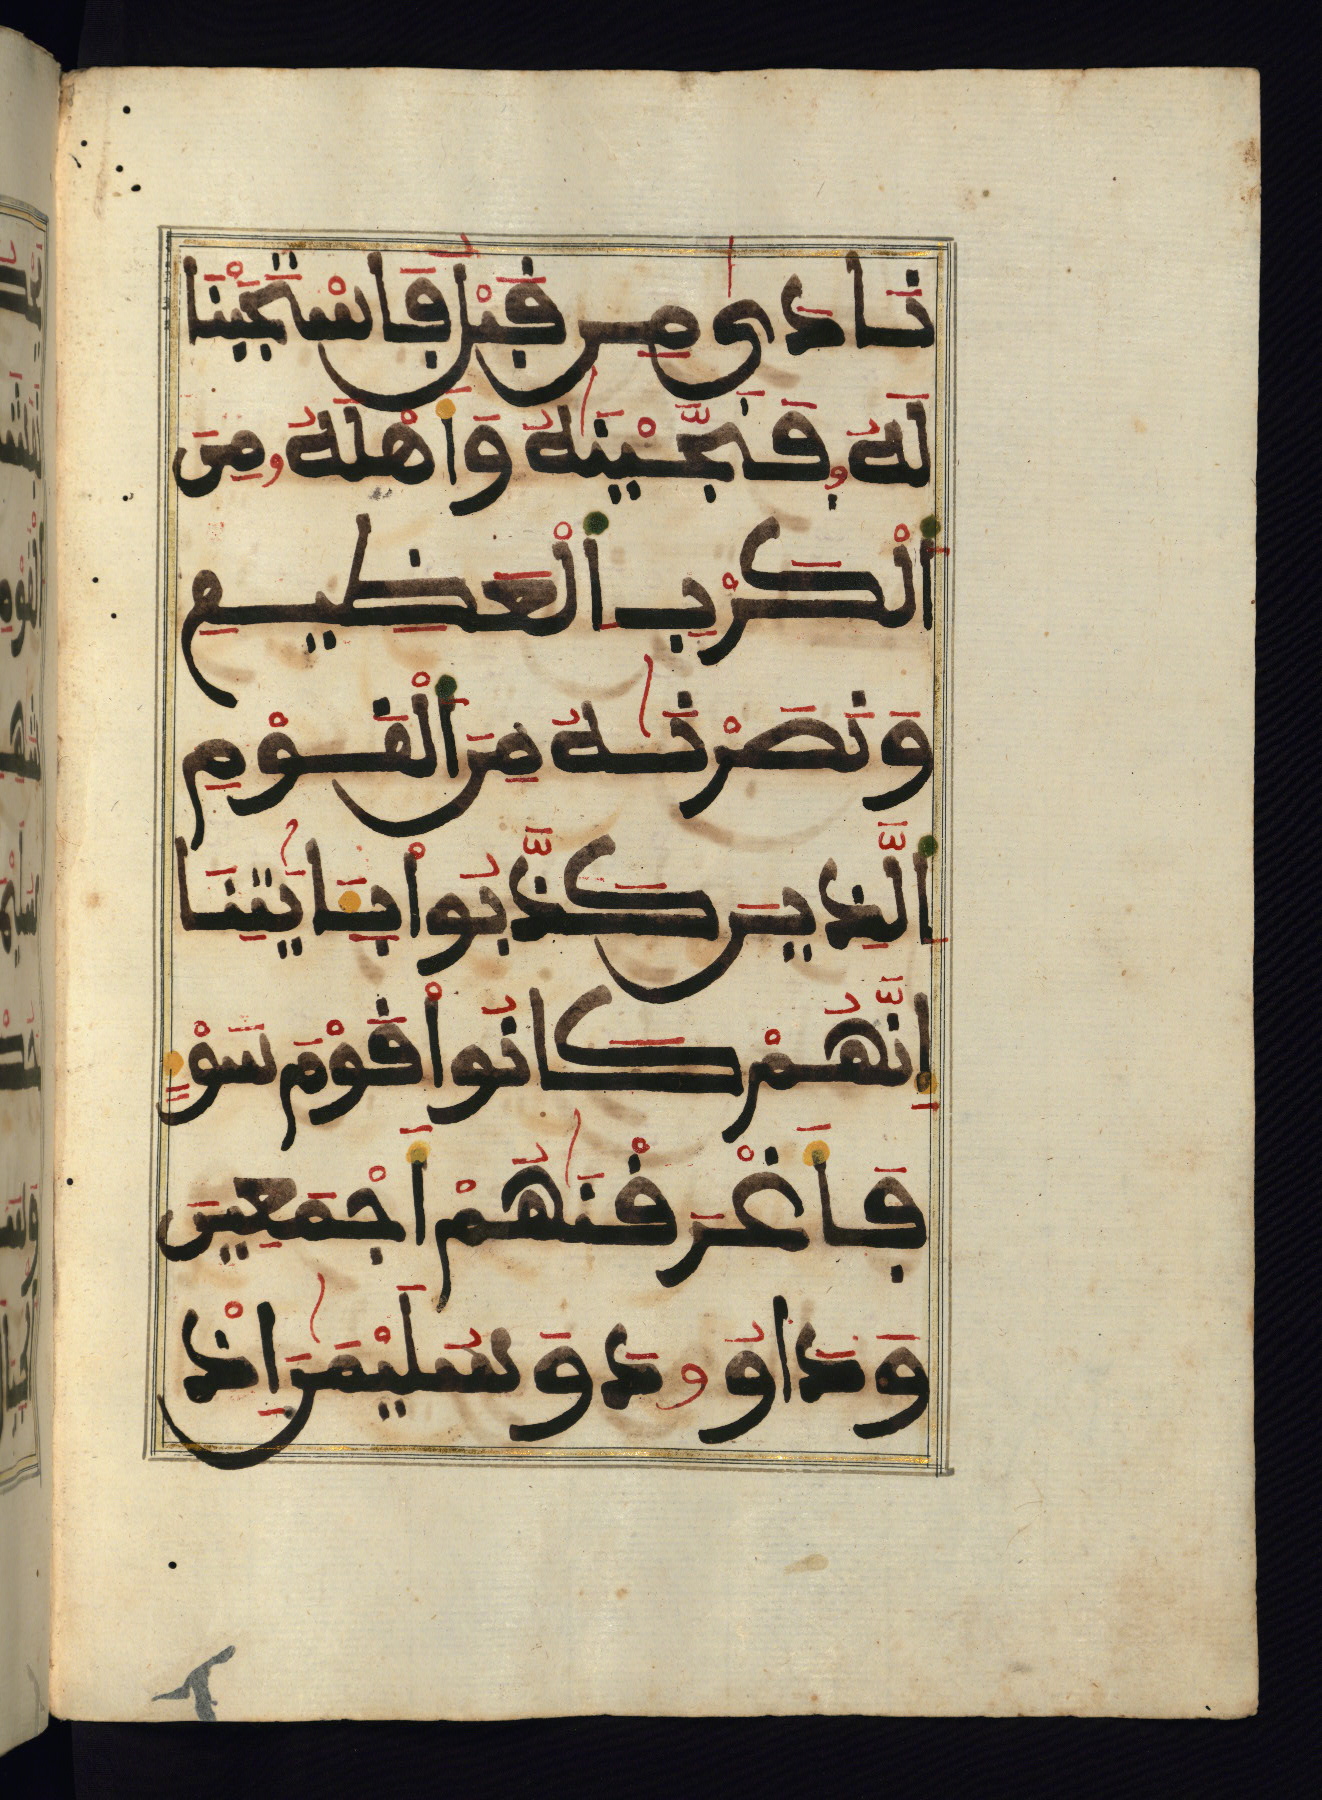 نَادَىٰ مِن قَبْلُ فَاسْتَجَبْنَا
لَهُۥ فَنَجَّيْنَٰهُ وَأَهْلَهُۥ مِنَ
ٱلْكَرْبِ ٱلْعَظِيمِ
وَنَصَرْنَٰهُ مِنَ ٱلْقَوْمِ
ٱلَّذِينَ كَذَّبُواْ بِـَٔايَٰتِنَا
إِنَّهُمْ كَانُواْ قَوْمَ سَوْءٍ
فَأَغْرَقْنَٰهُمْ أَجْمَعِينَ
وَدَاوُۥدَ وَسُلَيْمَٰنَ إِذْ